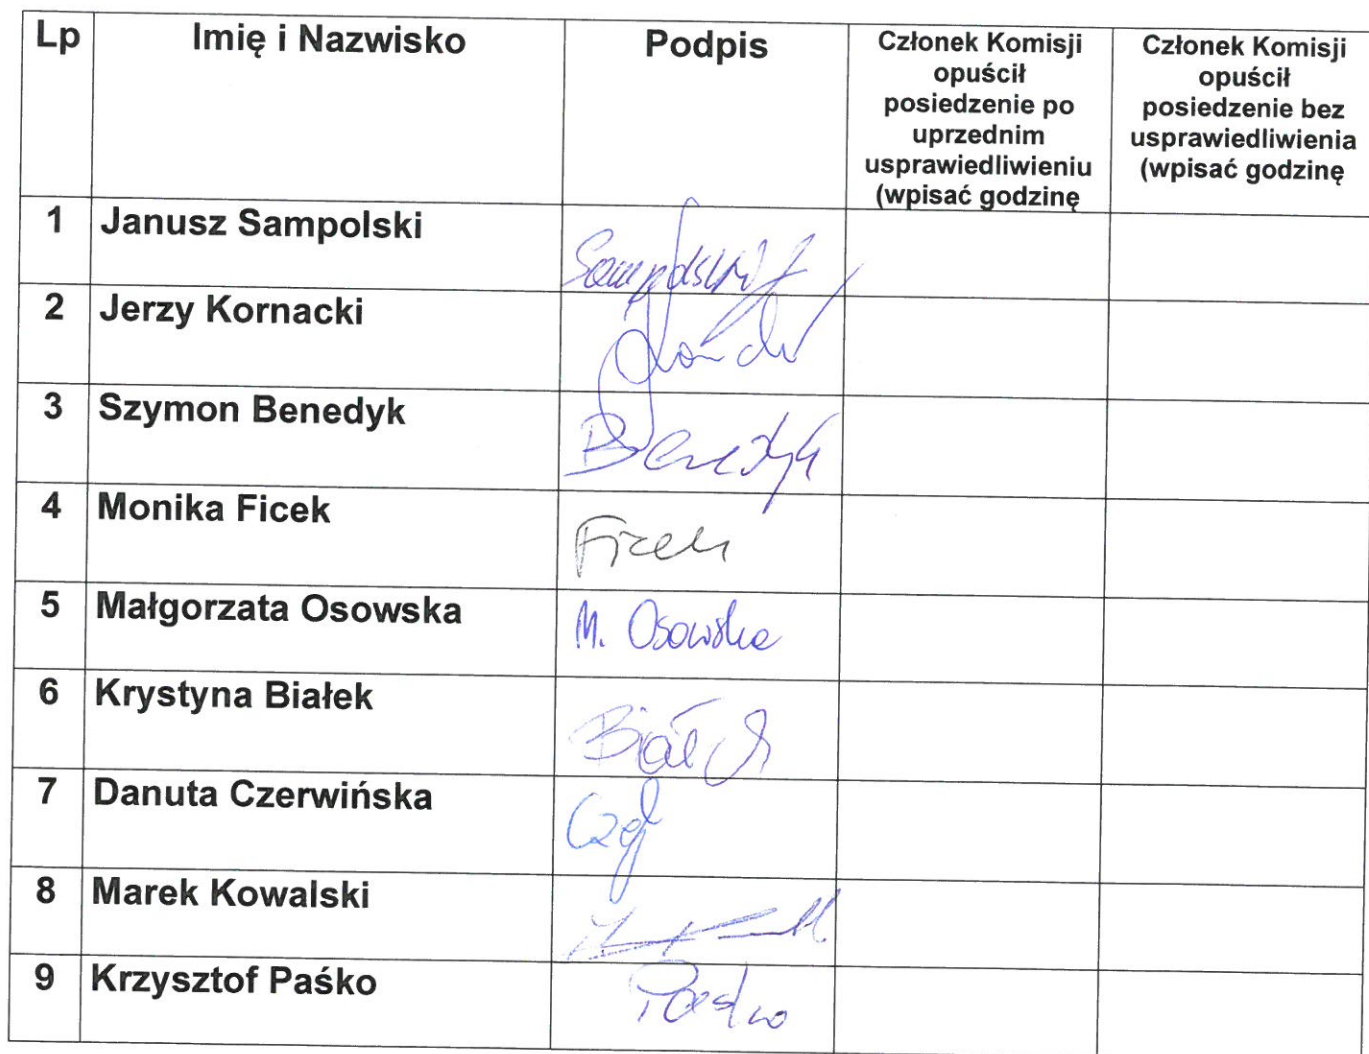 Lp Imię i Nazwisko Podpis Członek Komisji opuścił posiedzenie po uprzednim usprawiedliwieniu (wpisać godzinę Członek Komisji opuścił posiedzenie bez usprawiedliwienia (wpisać godzinę
1 Janusz Sampolski Sampolski
2 Jerzy Kornacki
3 Szymon Benedyk Benedyk
4 Monika Ficek Ficek
5 Małgorzata Osowska M. Osowska
6 Krystyna Białek Białek
7 Danuta Czerwińska
8 Marek Kowalski
9 Krzysztof Paśko Paśko